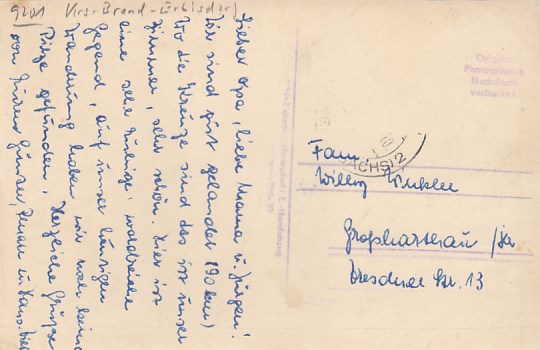 9201 Krs. Brand-Erbisdorf
Lieber Opa, liebe Mama u. Jürgen!
Wir sind gut gelandet (190 km)
Wo die Kreuze sind das ist unser
Zimmer, sehr schön. Hier ist
eine sehr ruhige, waldreiche
Gegend, auf unser heutigen
Wanderung haben wir noch keine
Pilze gefunden. Herzliche Grüße
von Günter,
Original-
Photographie
Nachdruck
verboten!
Fam.
Willy
Großharthau /
Dresdner Str. 13